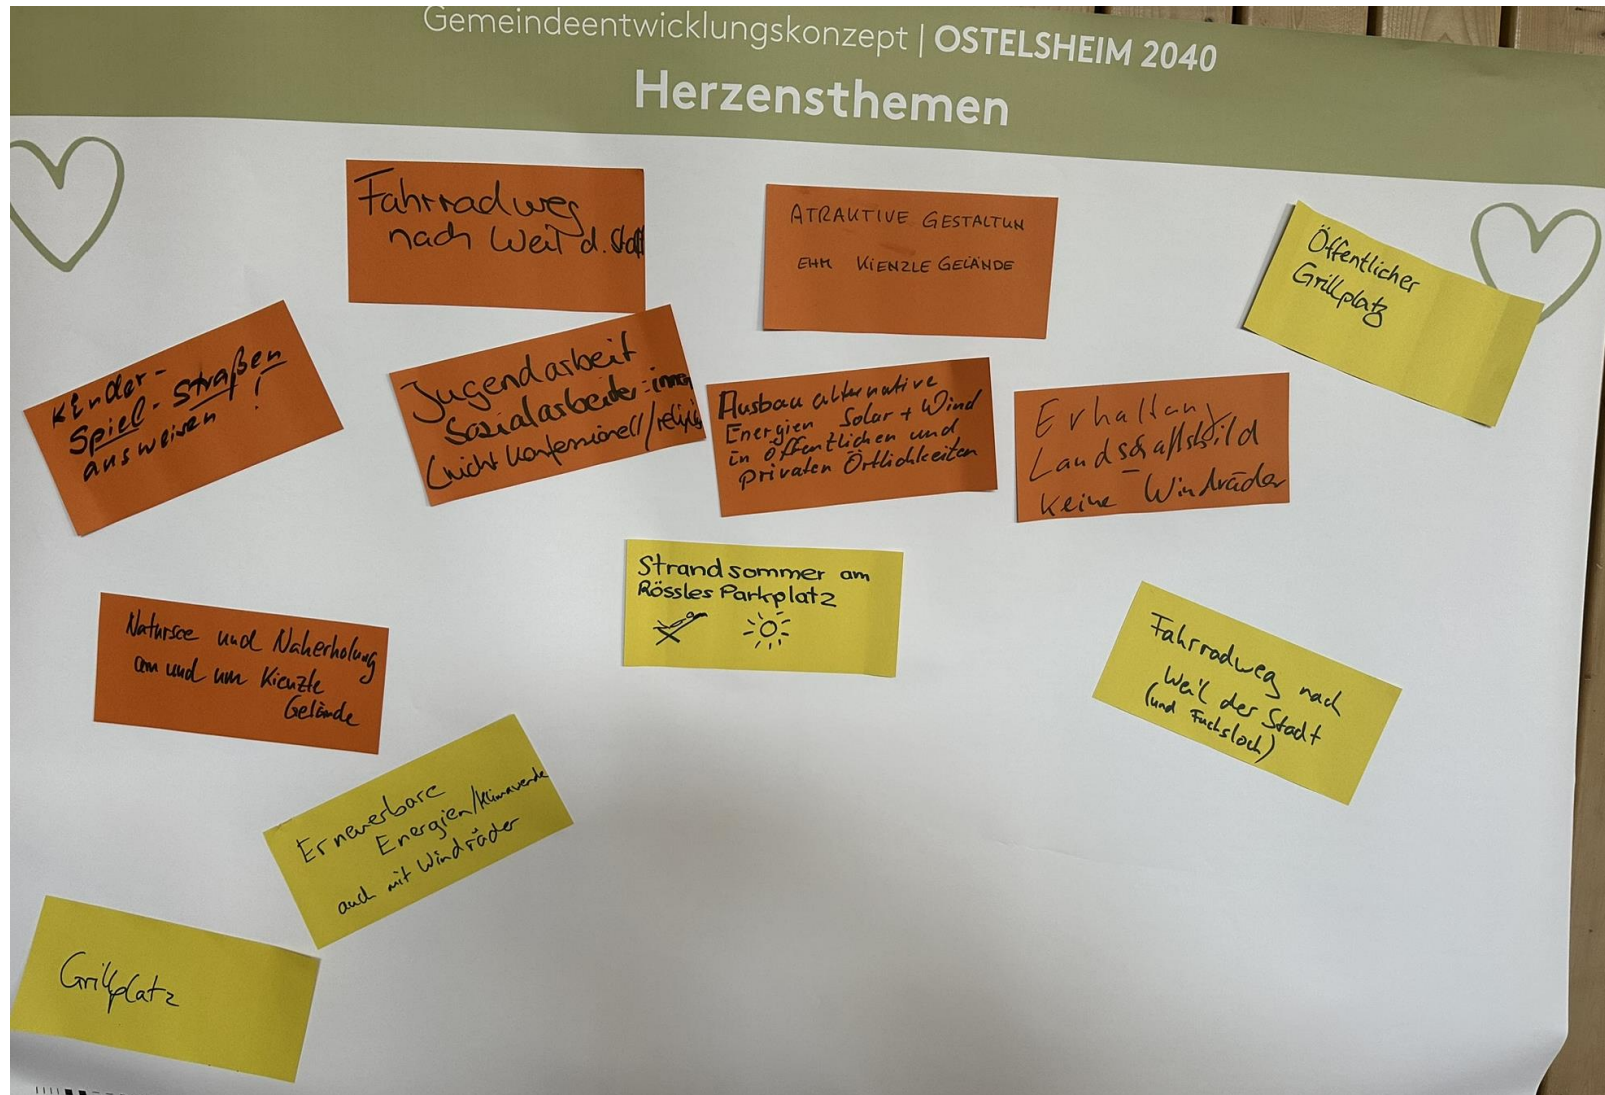 Gemeindeentwicklungskonzept | OSTELSHEIM 2040
Herzensthemen
Fahrradweg
nach Weil d. Stadt
ATRAKTIVE GESTALTUN
EHM KIENZLE GELÄNDE
Öffentlicher
Grillplatz
Kinder-
Spiel-Straßen
ausweisen !
Jugendarbeit
Sozialarbeiter:innen
(nicht konfessionell/religiös
Ausbau alternative
Energien Solar + Wind
in öffentlichen und
privaten Örtlichkeiten
Erhaltung
Landschaftsbild
keine Windräder
Strandsommer am
Rössles Parkplatz
Natursee und Naherholung
am und um Kienzle
Gelände
Fahrradweg nach
Weil der Stadt
(und Fuchsloch)
Erneuerbare
Energien/Klimawende
auch mit Windräder
Grillplatz